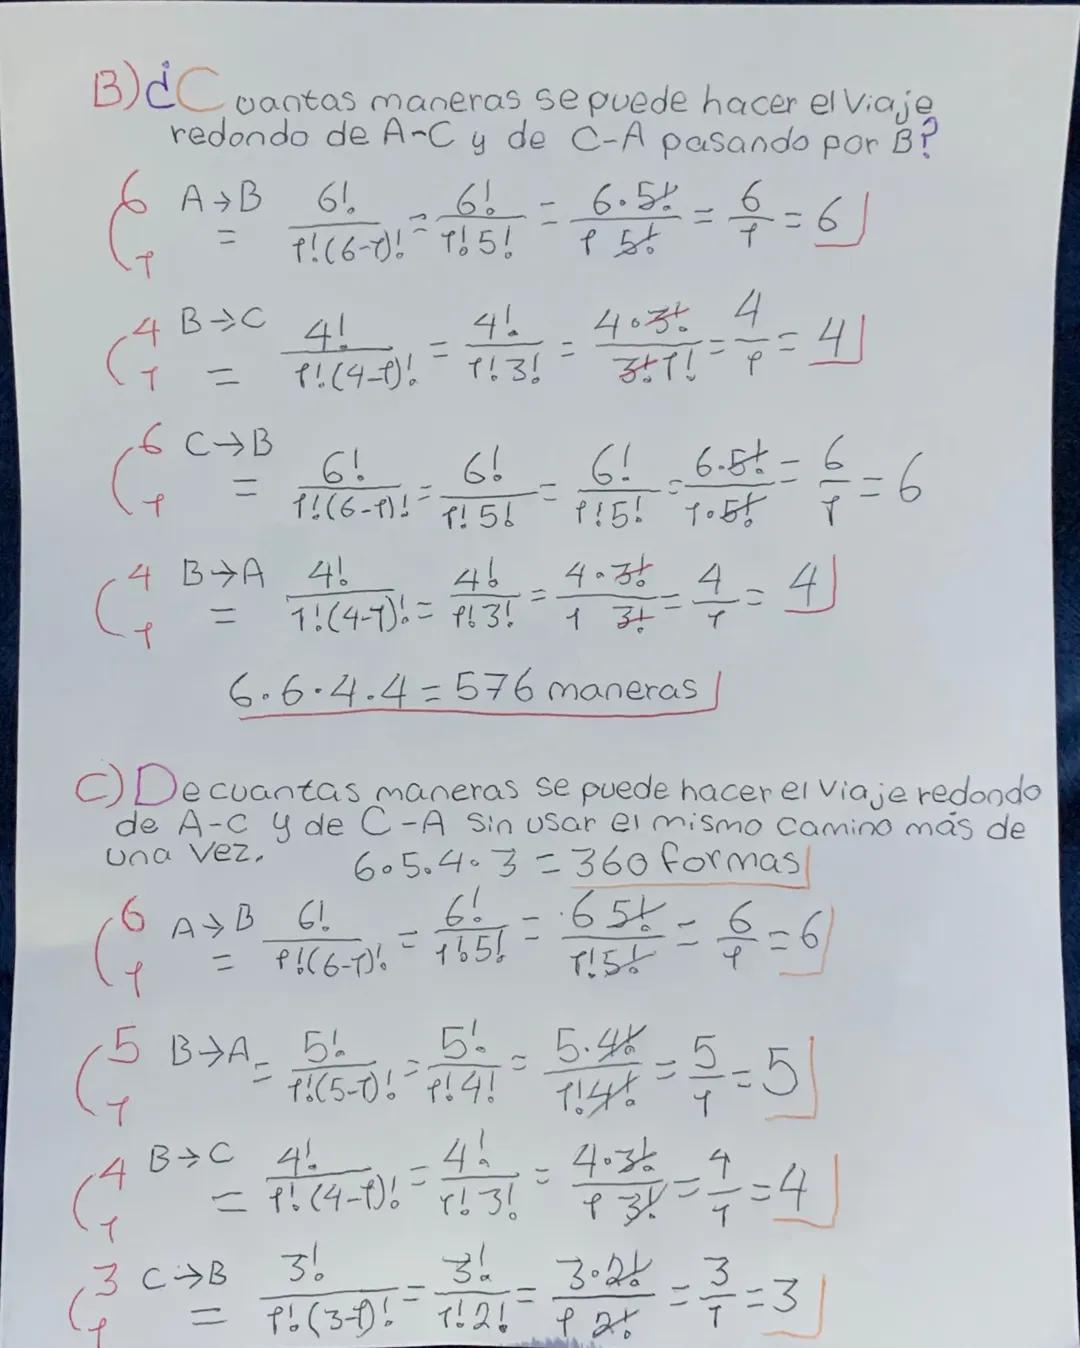 B) ¿Cuantas maneras se puede hacer el Viaje
redondo de A-C y de C-A pasando por B?
C 6 1 A→B = 6!/1!(6-1)! = 6!/1!5! = 6·5!/1 5! = 6/1 = 6
C 4 1 B→C = 4!/1!(4-1)! = 4!/1!3! = 4·3!/3!1! = 4/1 = 4
C 6 1 C→B = 6!/1!(6-1)! = 6!/1!5! = 6!/1!5! = 6·5!/1·5! = 6/1 = 6
C 4 1 B→A = 4!/1!(4-1)! = 4!/1!3! = 4·3!/1 3! = 4/1 = 4
6·6·4·4 = 576 maneras
C) De cuantas maneras se puede hacer el Viaje redondo
de A-C y de C-A sin usar el mismo camino más de
una vez.
6·5.4·3 = 360 formas
C 6 1 A→B = 6!/1!(6-1)! = 6!/1!5! = 6 5!/1!5! = 6/1 = 6
C 5 1 B→A = 5!/1!(5-1)! = 5!/1!4! = 5·4!/1!4! = 5/1 = 5
C 4 1 B→C = 4!/1!(4-1)! = 4!/1!3! = 4·3!/1 3! = 4/1 = 4
C 3 1 C→B = 3!/1!(3-1)! = 3!/1!2! = 3·2!/1 2! = 3/1 = 3